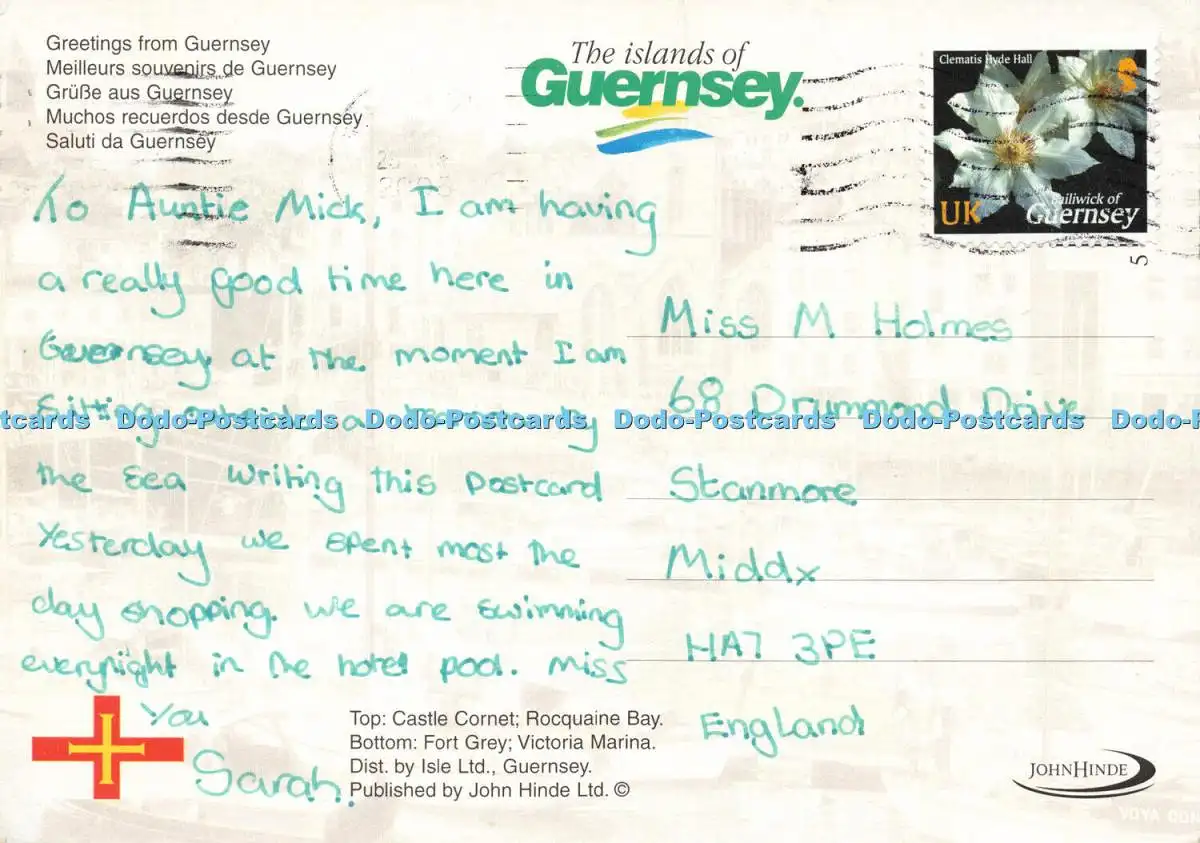 Greetings from Guernsey
Meilleurs souvenirs de Guernsey
Grüße aus Guernsey
Muchos recuerdos desde Guernsey
Saluti da Guernsey
The islands of
Guernsey.
Clematis Hyde Hall
UK
Bailiwick of
Guernsey
5
To Auntie Mick, I am having
a really good time here in
Guernsey at the moment I am
sitting a by
the sea writing this postcard
Yesterday we spent most the
day shopping. we are swimming
everynight in the hotel pool. miss
you
Sarah.
Miss M Holmes
68 Drummond Drive
Stanmore
Middx
HA7 3PE
England
Dodo-Postcards Dodo-Postcards Dodo-Postcards Dodo-Postcards
Top: Castle Cornet; Rocquaine Bay.
Bottom: Fort Grey; Victoria Marina.
Dist. by Isle Ltd., Guernsey.
Published by John Hinde Ltd. ©
JOHN HINDE